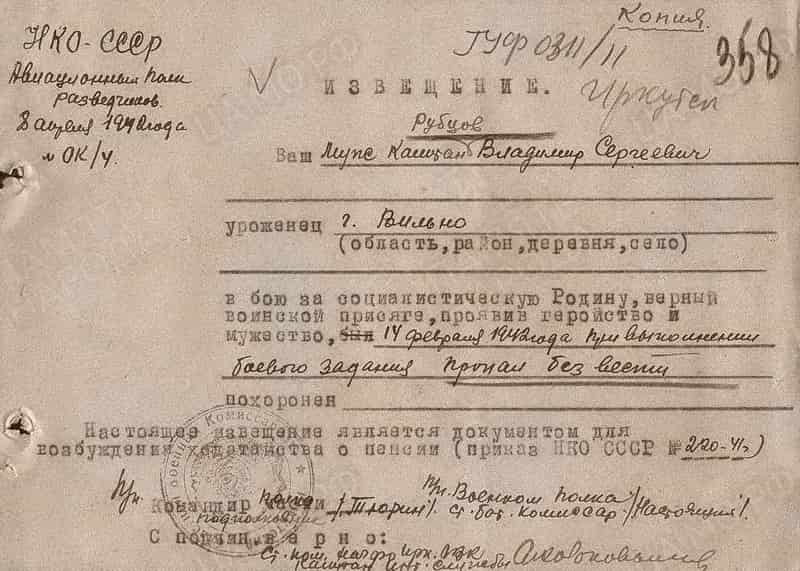 Копия.
НКО-СССР
ГУФ 0311/11
358
Авиационный полк
разведчиков.
8 апреля 1942 года
№ ОК/4.
ИЗВЕЩЕНИЕ.
Иркутск
Рубцов
Ваш Муж Капитан Владимир Сергеевич
уроженец г. Вильно
(область,район,деревня,село)
в бою за социалистическую Родину,верный
воинской присяге,проявив геройство и
мужество,был 14 февраля 1942 года при выполнении
боевого задания пропал без вести
похоронен
Настоящее извещение является документом для
возбуждения ходатайства о пенсии (приказ НКО СССР №220-41г)
Командир части полка /Тюрин/. Военком полка
подполковник ст. бат. комиссар /Настоящий/.
С подлин.верно:
Капитан инт. службы